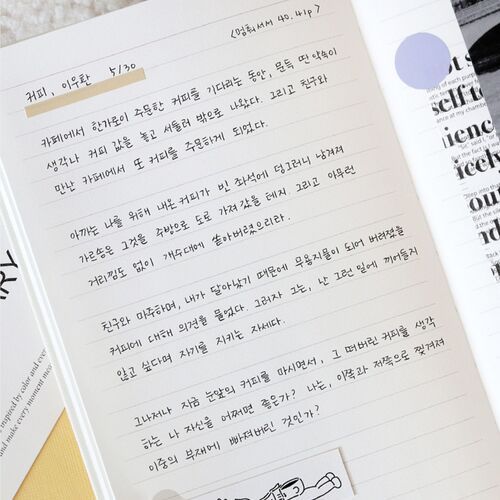 <멈춰서서 40.41p>
커피, 이우환 5/30
카페에서 한가로이 주문한 커피를 기다리는 동안, 문득 딴 약속이
생각나 커피 값을 놓고 서둘러 밖으로 나왔다. 그리고 친구와
만난 카페에서 또 커피를 주문하게 되었다.
아까는 나를 위해 내온 커피가 빈 좌석에 덩그러니 남겨져
가르송은 그것을 주방으로 도로 가져갔을 테지. 그리고 아무런
거리낌도 없이 개수대에 쏟아버렸으리라.
친구와 마주하며, 내가 달아났기 때문에 무용지물이 되어 버려졌을
커피에 대해 의견을 물었다. 그러자 그는, 난 그런 일에 끼어들지
않고 싶다며 자기를 지키는 자세다.
그나저나 지금 눈앞의 커피를 마시면서, 그 떠버린 커피를 생각
하는 나 자신을 어쩌면 좋은가? 나는, 이쪽과 저쪽으로 찢겨져
이중의 부재에 빠져버린 것인가?
inspired by color and
and make every moment